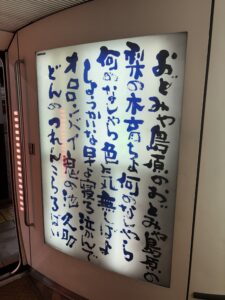 おどみゃ島原のおどみゃ島原の
梨の木育ちよ何のなしやら
何のなしやら色気無しばよ
しょうかいな早よ寝ろ泣かんで
オロロンバイ鬼の池久助
どんのつれんこらるばい